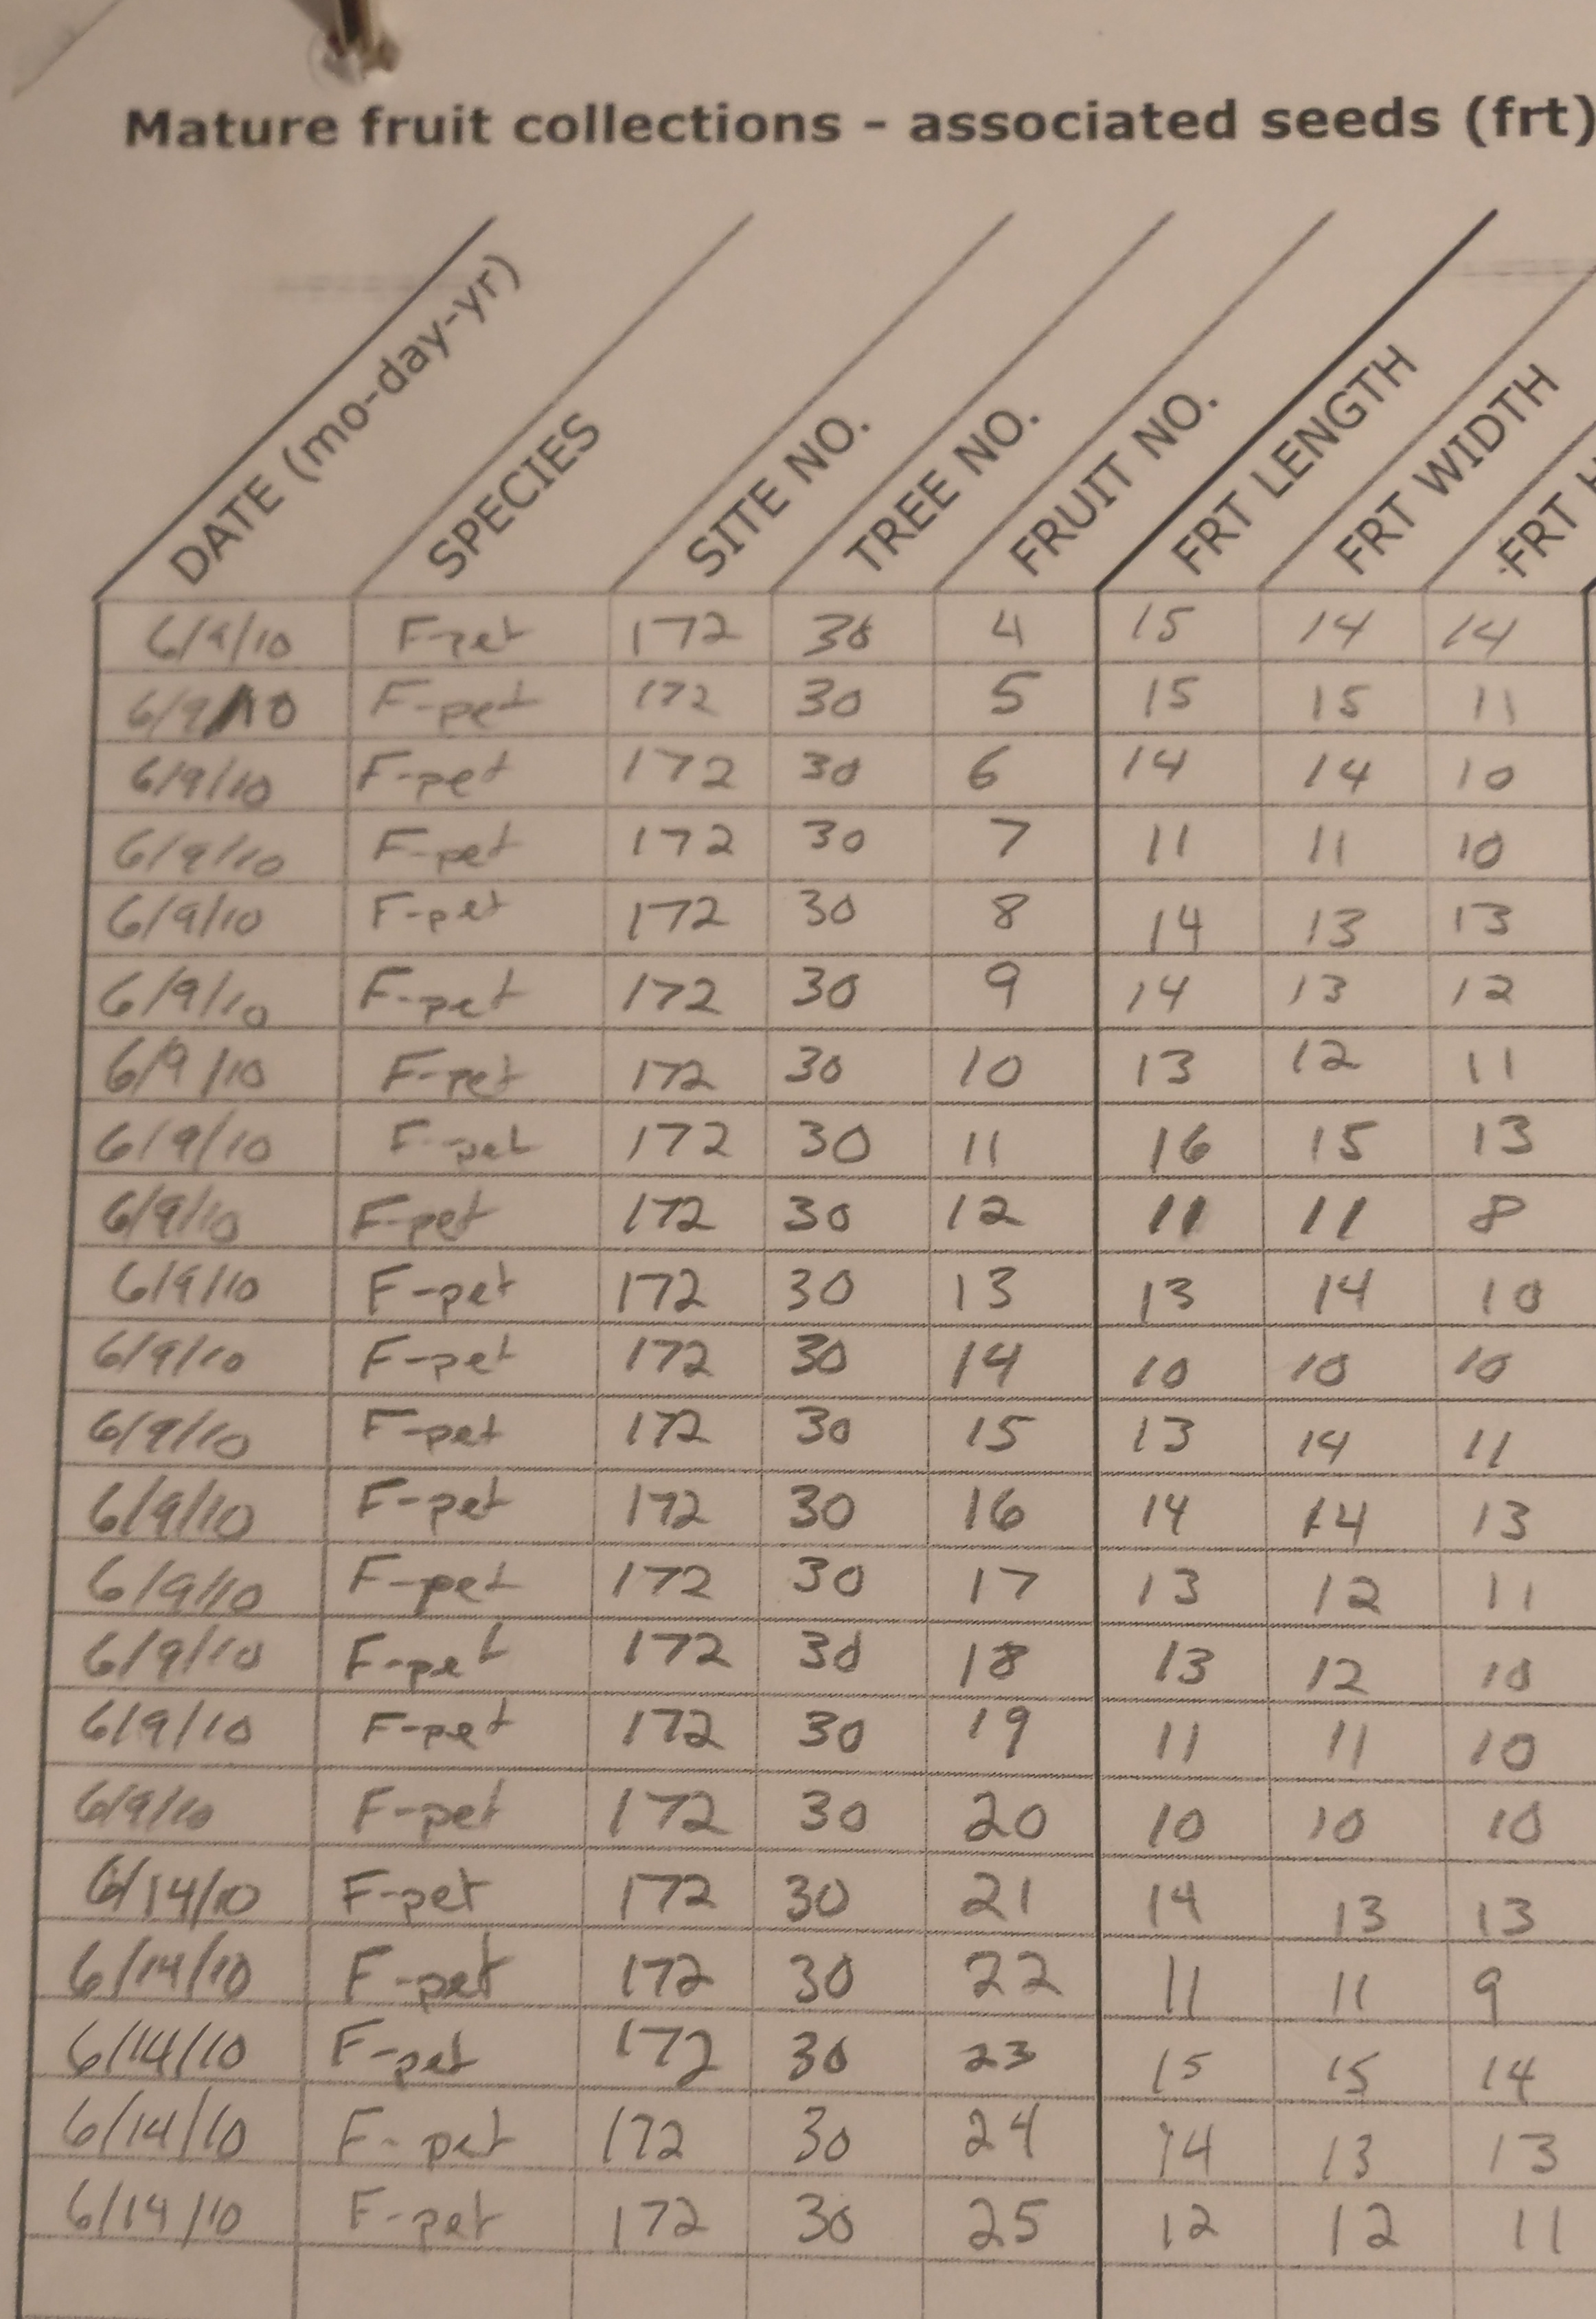 Mature fruit collections - associated seeds (frt)
DATE (mo-day-yr) SPECIES SITE NO. TREE NO. FRUIT NO. FRT LENGTH FRT WIDTH FRT
6/9/10 F-pet 172 30 4 15 14 14
6/9/10 F-pet 172 30 5 15 15 11
6/9/10 F-pet 172 30 6 14 14 10
6/9/10 F-pet 172 30 7 11 11 10
6/9/10 F-pet 172 30 8 14 13 13
6/9/10 F-pet 172 30 9 14 13 12
6/9/10 F-pet 172 30 10 13 12 11
6/9/10 F-pet 172 30 11 16 15 13
6/9/10 F-pet 172 30 12 11 11 8
6/9/10 F-pet 172 30 13 13 14 10
6/9/10 F-pet 172 30 14 10 10 10
6/9/10 F-pet 172 30 15 13 14 11
6/9/10 F-pet 172 30 16 14 14 13
6/9/10 F-pet 172 30 17 13 12 11
6/9/10 F-pet 172 30 18 13 12 10
6/9/10 F-pet 172 30 19 11 11 10
6/9/10 F-pet 172 30 20 10 10 10
6/14/10 F-pet 172 30 21 14 13 13
6/14/10 F-pet 172 30 22 11 11 9
6/14/10 F-pet 172 30 23 15 15 14
6/14/10 F-pet 172 30 24 14 13 13
6/14/10 F-pet 172 30 25 12 12 11